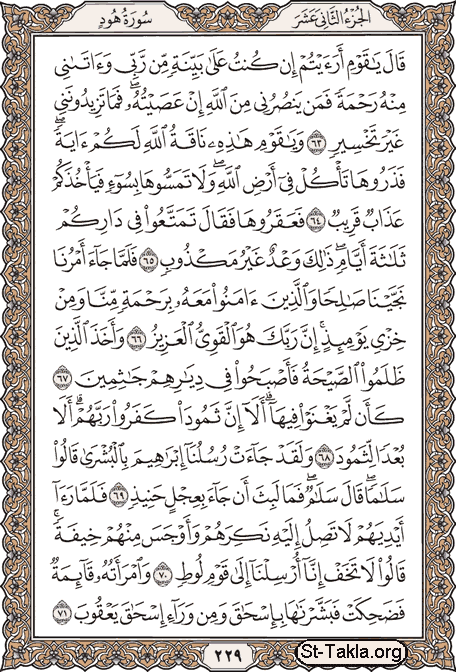 الجزء الثاني عشر
سورة هود
قَالَ يَٰقَوْمِ أَرَءَيْتُمْ إِن كُنتُ عَلَىٰ بَيِّنَةٍ مِّن رَّبِّي وَءَاتَىٰنِي
مِنْهُ رَحْمَةً فَمَن يَنصُرُنِي مِنَ ٱللَّهِ إِنْ عَصَيْتُهُۥۖ فَمَا تَزِيدُونَنِي
غَيْرَ تَخْسِيرٍ ٦٣ وَيَٰقَوْمِ هَٰذِهِۦ نَاقَةُ ٱللَّهِ لَكُمْ ءَايَةًۖ
فَذَرُوهَا تَأْكُلْ فِيٓ أَرْضِ ٱللَّهِۖ وَلَا تَمَسُّوهَا بِسُوٓءٍ فَيَأْخُذَكُمْ
عَذَابٌ قَرِيبٌ ٦٤ فَعَقَرُوهَا فَقَالَ تَمَتَّعُوا۟ فِي دَارِكُمْ
ثَلَٰثَةَ أَيَّامٍۖ ذَٰلِكَ وَعْدٌ غَيْرُ مَكْذُوبٍ ٦٥ فَلَمَّا جَآءَ أَمْرُنَا
نَجَّيْنَا صَٰلِحًا وَٱلَّذِينَ ءَامَنُوا۟ مَعَهُۥ بِرَحْمَةٍ مِّنَّا وَمِنْ
خِزْيِ يَوْمِئِذٍۗ إِنَّ رَبَّكَ هُوَ ٱلْقَوِيُّ ٱلْعَزِيزُ ٦٦ وَأَخَذَ ٱلَّذِينَ
ظَلَمُوا۟ ٱلصَّيْحَةُ فَأَصْبَحُوا۟ فِي دِيَٰرِهِمْ جَٰثِمِينَ ٦٧
كَأَن لَّمْ يَغْنَوْا۟ فِيهَآۗ أَلَآ إِنَّ ثَمُودَا۟ كَفَرُوا۟ رَبَّهُمْۗ أَلَا
بُعْدًا لِّثَمُودَ ٦٨ وَلَقَدْ جَآءَتْ رُسُلُنَآ إِبْرَٰهِيمَ بِٱلْبُشْرَىٰ قَالُوا۟
سَلَٰمًاۖ قَالَ سَلَٰمٌۖ فَمَا لَبِثَ أَن جَآءَ بِعِجْلٍ حَنِيذٍ ٦٩ فَلَمَّا رَءَآ
أَيْدِيَهُمْ لَا تَصِلُ إِلَيْهِ نَكِرَهُمْ وَأَوْجَسَ مِنْهُمْ خِيفَةًۚ
قَالُوا۟ لَا تَخَفْ إِنَّآ أُرْسِلْنَآ إِلَىٰ قَوْمِ لُوطٍ ٧٠ وَٱمْرَأَتُهُۥ قَآئِمَةٌ
فَضَحِكَتْ فَبَشَّرْنَٰهَا بِإِسْحَٰقَ وَمِن وَرَآءِ إِسْحَٰقَ يَعْقُوبَ ٧١
٢٢٩
St-Takla.org